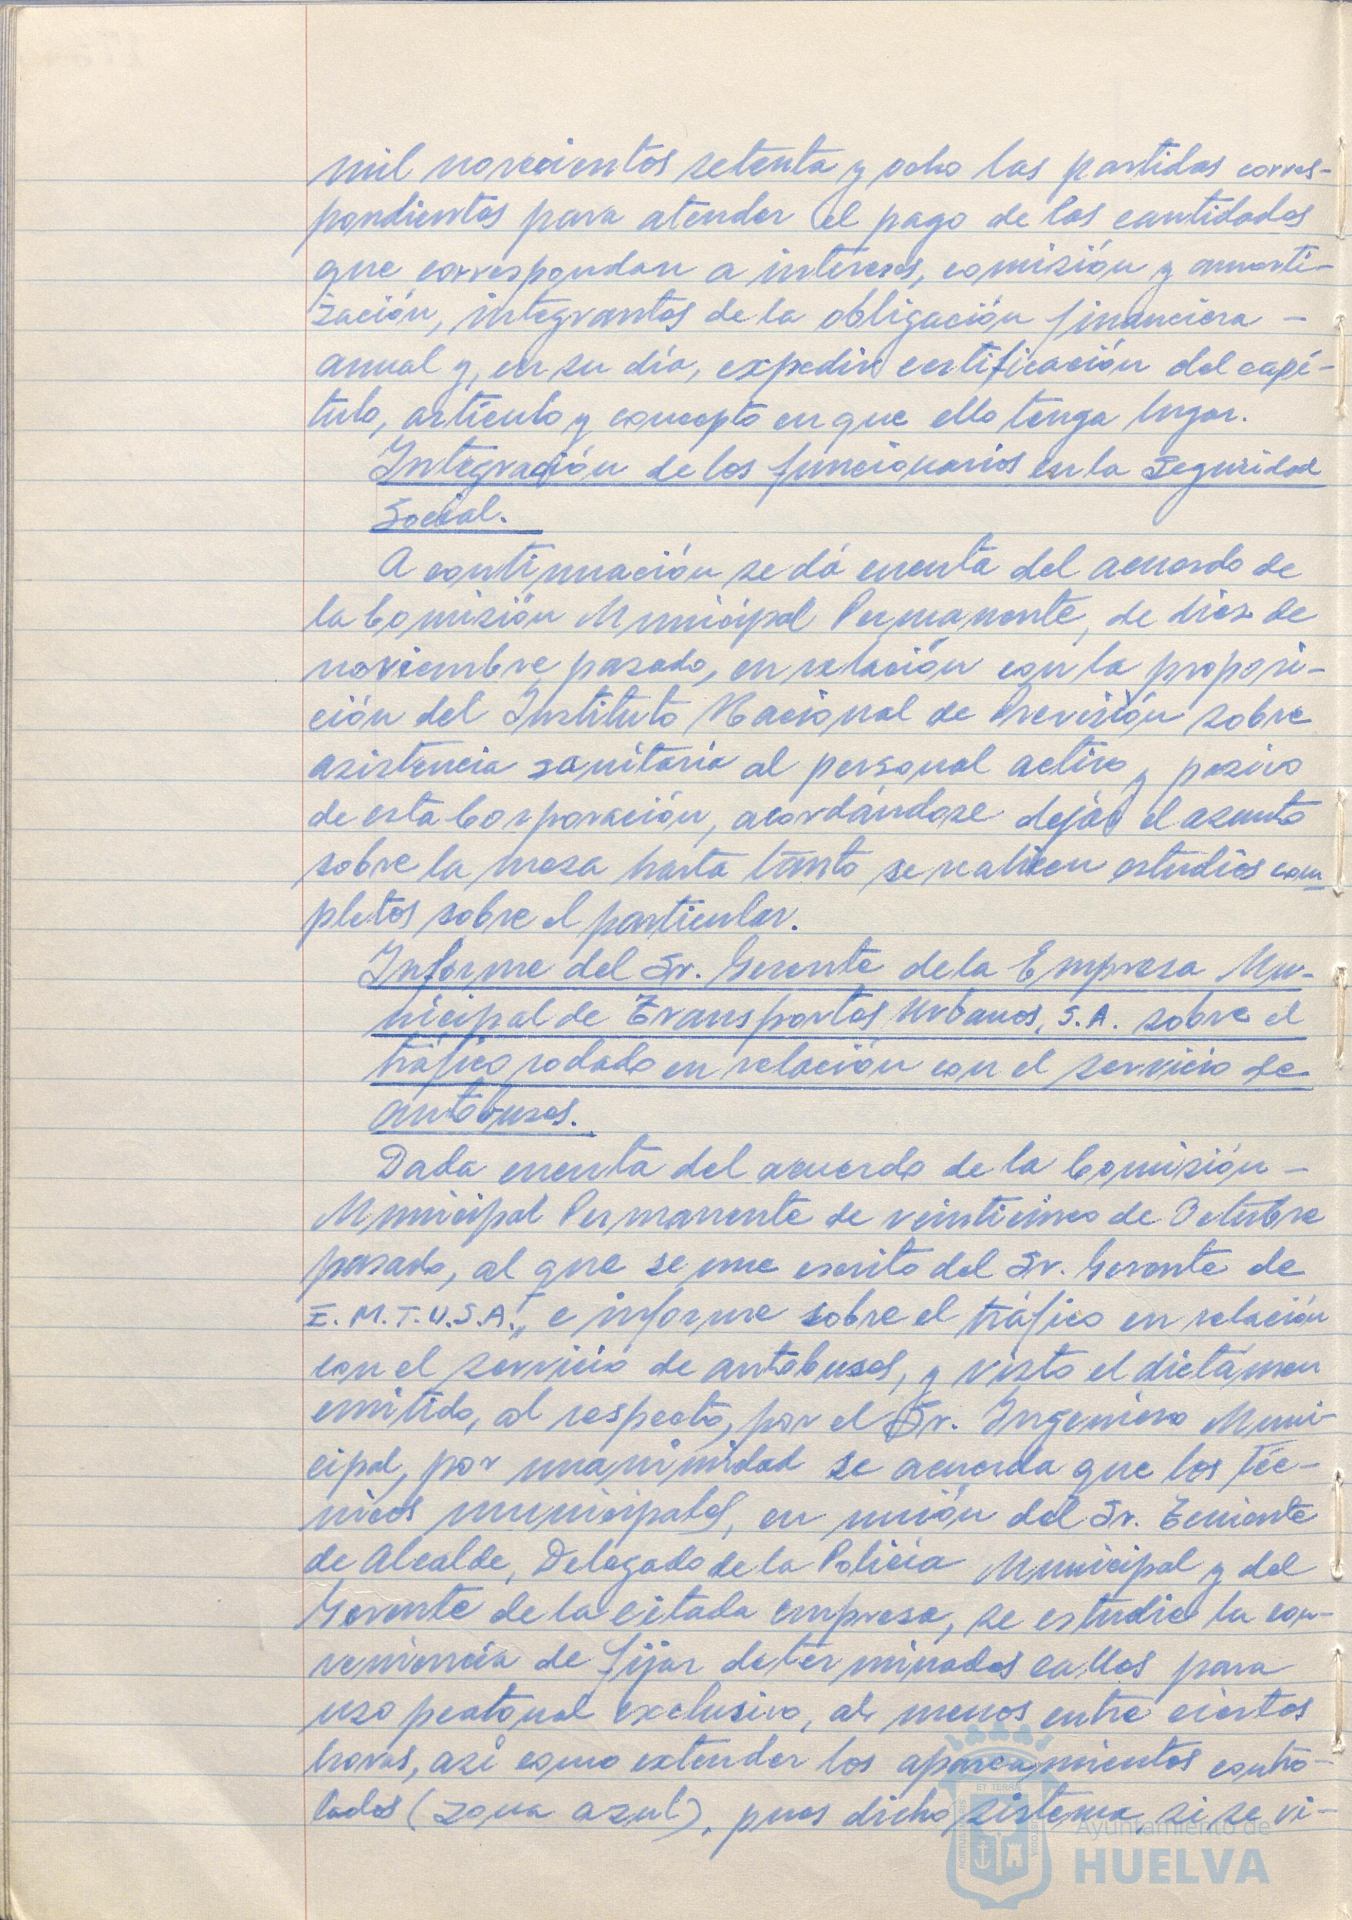 mil novecientos setenta y ocho las partidas corres-
pondientes para atender el pago de las cantidades
que correspondan a intereses, comisión y amorti-
zación, integrantes de la obligación financiera -
anual y, en su día, expedir certificación del capí-
tulo, artículo y concepto en que ello tenga lugar.
Integración de los funcionarios en la Seguridad
Social.
A continuación se dá cuenta del acuerdo de
la Comisión Municipal Permanente, de diez de
noviembre pasado, en relación con la proposi-
ción del Instituto Nacional de Previsión sobre
asistencia sanitaria al personal activo y pasivo
de esta Corporación, acordándose dejar el asunto
sobre la mesa hasta tanto se realicen estudios com
pletos sobre el particular.
Informe del Sr. Gerente de la Empresa Mu-
nicipal de Transportes Urbanos, S.A. sobre el
tráfico rodado en relación con el servicio de
autobuses.
Dada cuenta del acuerdo de la Comisión -
Municipal Permanente de veinticinco de Octubre
pasado, al que se une escrito del Sr. Gerente de
E.M.T.U.S.A., e informe sobre el tráfico en relación
con el servicio de autobuses, y visto el dictámen
emitido, al respecto, por el Sr. Ingeniero Muni-
cipal, por unanimidad se acuerda que los téc-
nicos municipales, en unión del Sr. Teniente
de Alcalde, Delegado de la Policía Municipal y del
Gerente de la citada empresa, se estudie la con-
veniencia de fijar determinadas calles para
uso peatonal exclusivo, al menos entre ciertas
horas, así como extender los aparcamientos contro-
lados (zona azul), pues dicho sistema, si se vi-
Ayuntamiento de
HUELVA